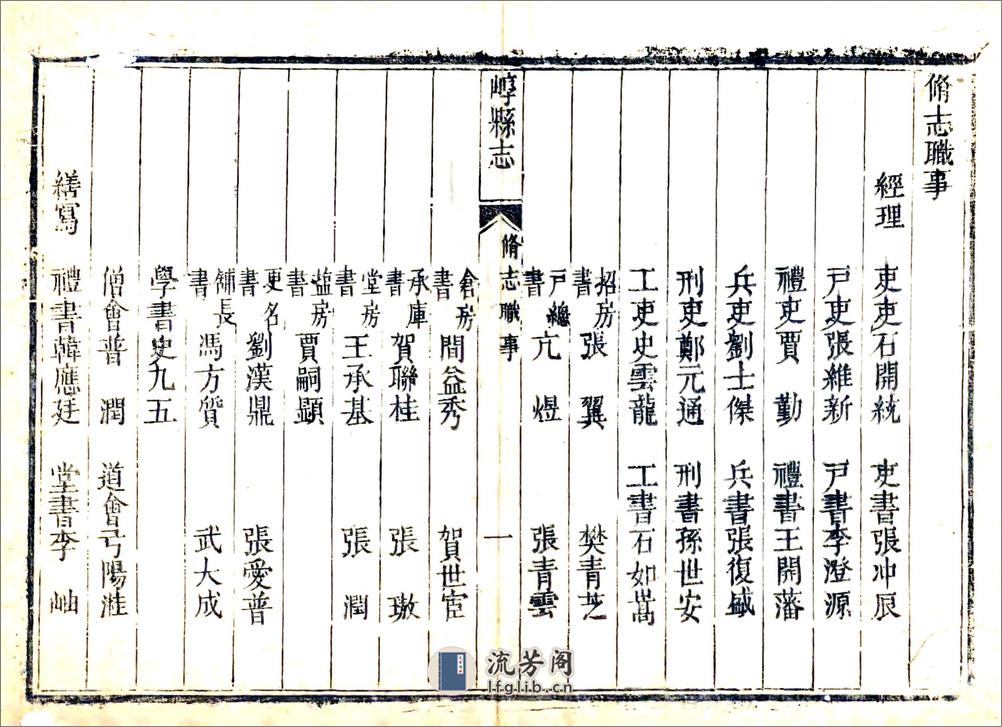 脩志職事
經理 吏吏石開統 吏書張冲辰
戸吏張維新 戸書李澄源
禮吏賈勤 禮書王開藩
兵吏劉士傑 兵書張復盛
刑吏鄭元通 刑書孫世安
工吏史雲龍 工書石如嵩
招房書張翼 樊青芝
戸總書亢煜 張青雲
崞縣志 脩志職事 一
倉房書閻益秀 賀世宦
承庫書賀聯桂 張璈
堂房書王承基 張潤
鹽房書賈嗣顕
更名書劉漢鼎 張愛普
鋪長書馮方質 武大成
學書史九五
僧會普潤 道會弓陽溎
繕寫 禮書韓應廷 堂書李岫
流芳阁
lfglib.cn